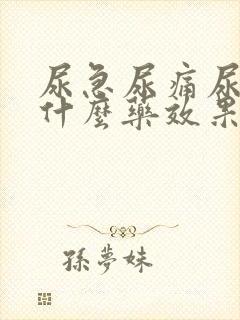 尿急尿痛尿
什麼藥效果
孫夢妹